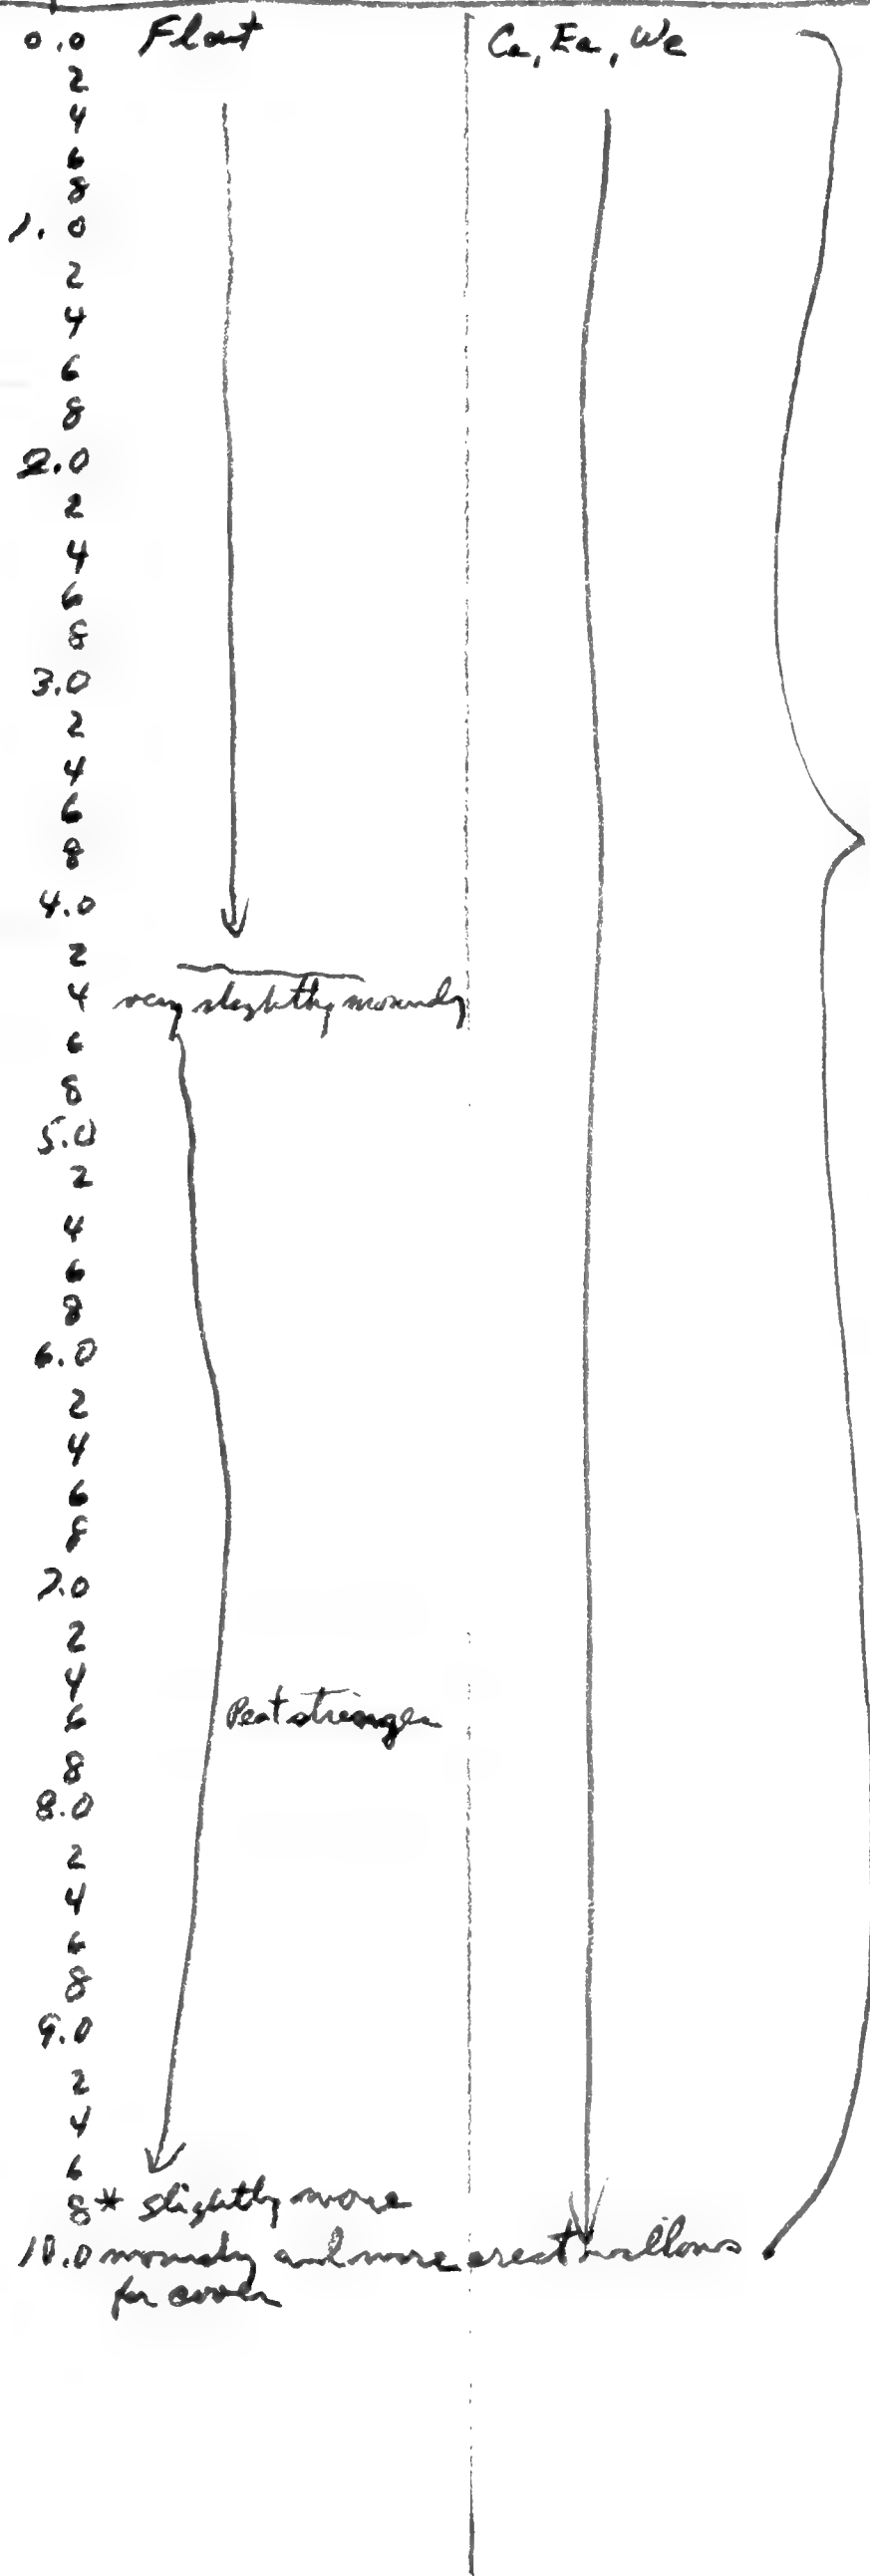 0.0 Float Ca, Ea, We
2
4
6
8
1.0
2
4
6
8
2.0
2
4
6
8
3.0
2
4
6
8
4.0
2
4 very slightly moundy
6
8
5.0
2
4
6
8
6.0
2
4
6
8
7.0
2
4
6 Peat stronger
8
8.0
2
4
6
8
9.0
2
4
6
8 * slightly more
10.0 moundy and more erect willows
for cover